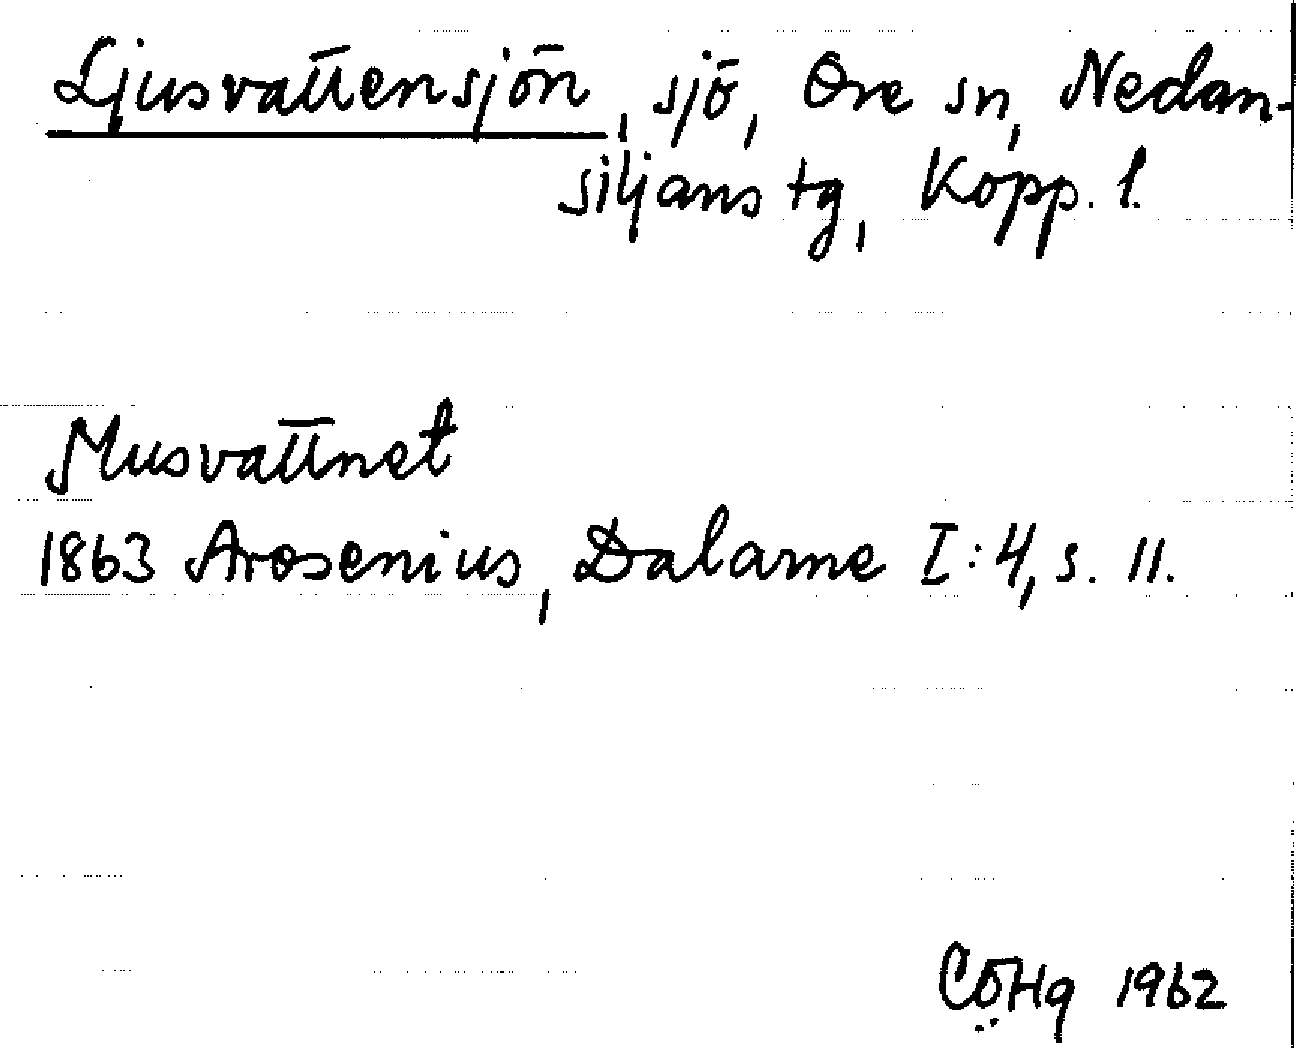 Ljusvattensjön, sjö, Ore sn, Nedan-
siljans tg, Kopp. l.
Musvattnet
1863 Arosenius, Dalarne I:4, s. 11.
CÖHg 1962